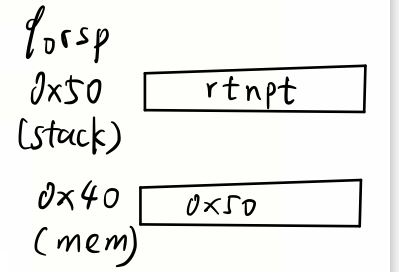 %rsp
0x50
rtnpt
(stack)
0x40
0x50
(mem)